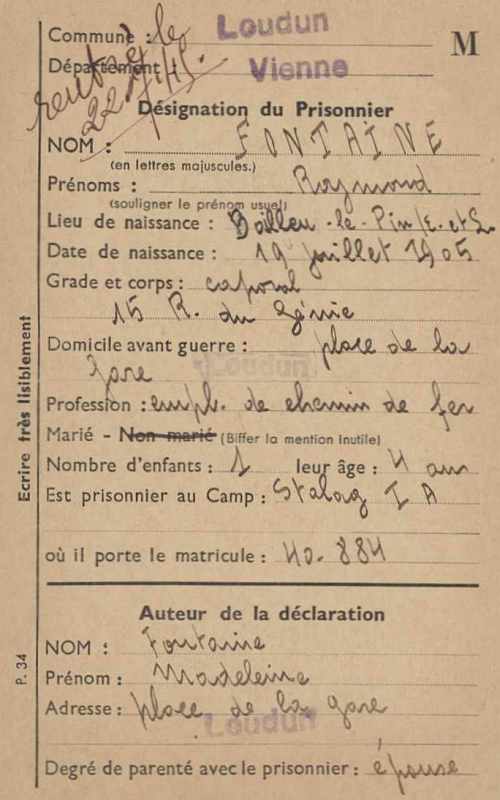 Commune : Loudun
M
Département : Vienne
rentré le
22
Désignation du Prisonnier
NOM : FONTAINE
(en lettres majuscules.)
Prénoms : Raymond
(souligner le prénom usuel)
Lieu de naissance : Bailleu-le-Pin /E.et L.
Date de naissance : 19 juillet 1905
Grade et corps : caporal
15 R. du Génie
Domicile avant guerre : place de la
gare Loudun
Profession : empl. de chemin de fer
Marié - Non marié (Biffer la mention inutile)
Nombre d'enfants : 1 leur âge : 4 ans
Est prisonnier au Camp : Stalag I A
où il porte le matricule : 40.884
Auteur de la déclaration
NOM : Fontaine
Prénom : Madeleine
Adresse : place de la gare
Loudun
Degré de parenté avec le prisonnier : épouse
Ecrire très lisiblement
P. 34